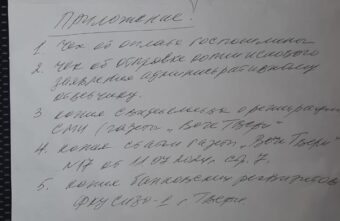 Приложение:
1. Чек об оплате госпошлины
2. Чек об отправке копии искового
заявления административному
ответчику.
3 копия свидетельства о регистрации
СМИ (газеты „Вече Твери"
4. копия статьи газеты „Вече Твери"
№17 от 11.07. стр. 7.
5. копия банковских реквизитов
ФКУ СИЗО-1 г. Твери.